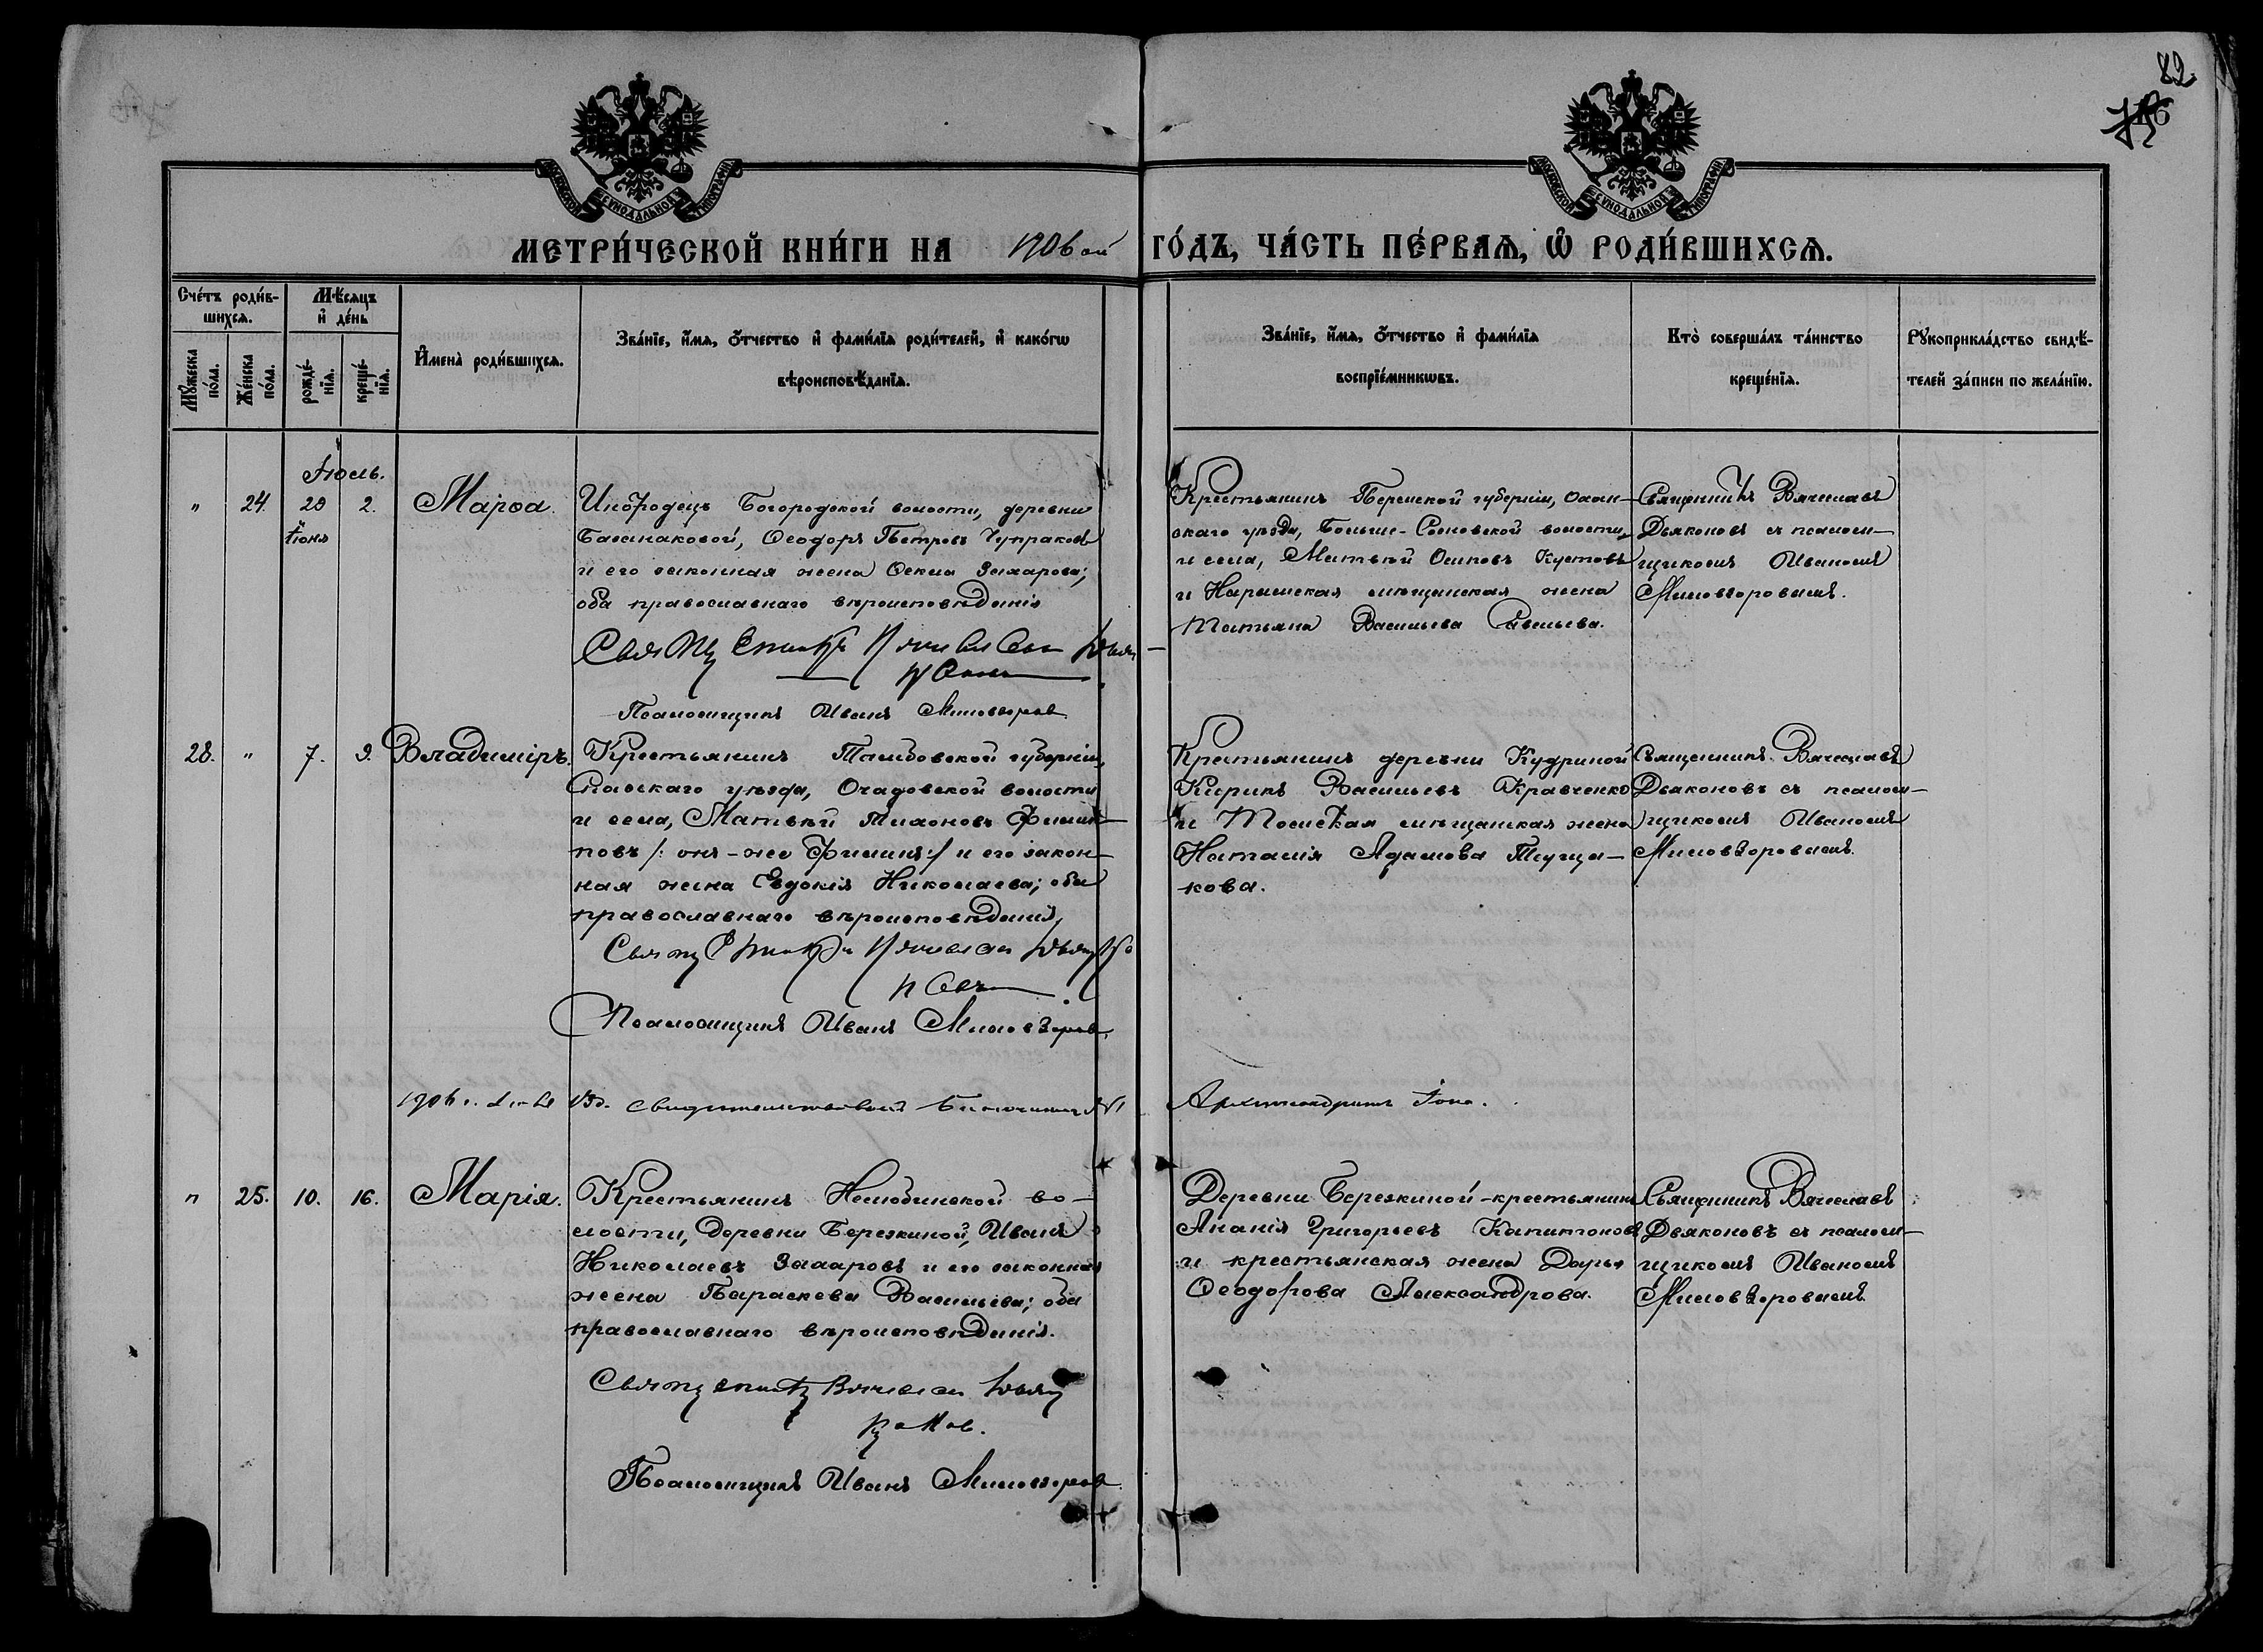 82
МЕТРИ́ЧЕСКОЙ КНИ́ГИ НА 1906 ой ГО́ДЪ, ЧА́СТЬ ПЕ́РВАѦ, Ѡ҆ РОДИ́ВШИХСѦ.
Сче́тъ роди́в-
шихсѧ.
Мѣ́сѧцъ
и҆ де́нь
Мꙋ́жеска
по́ла.
Же́нска
по́ла.
рожде́-
нїѧ.
креще́-
нїѧ.
И҆мена̀ роди́вшихсѧ.
Зва́нїе, и҆́мѧ, ѻ҆́тчество и҆ фами́лїѧ роди́телей, и҆ како́гѡ
вѣроисповѣ́данїѧ.
Зва́нїе, и҆́мѧ, ѻ҆́тчество и҆ фами́лїѧ
воспрїе́мникѡвъ.
Кто̀ соверша́лъ та́инство
креще́нїѧ.
Рꙋкоприкла́дство свидѣ́-
телей за́писи по жела́нїю.
Іюль.
" 24. 29 2. Марѳа.
Іюня
Инородецъ Богородской волости, деревни
Ѳеодоръ Петровъ Чупраковъ
и его законная жена Ѳекла Захарова;
оба православнаго вѣроисповѣданія
Священникъ Вячеславъ Дьяконовъ
Псаломщикъ Иванъ Миловзоровъ
Крестьянинъ Пермской губерніи, Охан-
скаго уѣзда, Больше-Сосновской волости,
и села, Матвѣй Осиповъ Кустовъ
и Нарымская мѣщанская жена
Татьяна Васильева Савельева.
Священникъ Вячеславъ
Дьяконовъ съ псалом-
щикомъ Иваномъ
Миловзоровымъ.
28. " 7. 9. Владиміръ.
Крестьянинъ Тамбовской губерніи,
Спасскаго уѣзда, Ачадовской волости
и села, Матвѣй Тихоновъ Филип-
повъ /: онъ-же Филинъ:/ и его закон-
ная жена Евдокія Николаева; оба
православнаго вѣроисповѣданія,
Священникъ Вячеславъ Дьяконовъ.
Псаломщикъ Иванъ Миловзоровъ.
Крестьянинъ деревни Кудриной
Кирикъ Васильевъ Кравченко
и Томская мѣщанская жена
Наталія Адамова
кова.
Священникъ Вячеславъ
Дьяконовъ съ псалом-
щикомъ Иваномъ
Миловзоровымъ.
1906 г. свидетельствовалъ Благочинный №1 Архимандритъ Іона.
" 25. 10. 16. Марія.
Крестьянинъ Нелюбинской во-
лости, деревни Березкиной, Иванъ
Николаевъ Захаровъ и его законная
жена Параскева Васильева; оба
православнаго вѣроисповѣданія.
Священникъ Вячеславъ Дья
коновъ.
Псаломщикъ Иванъ Миловзоровъ.
Деревни Березкиной-крестьянинъ
Ананія Григорьевъ Капитоновъ
и крестьянская жена Дарья
Ѳеодорова Александрова.
Священникъ Вячеславъ
Дьяконовъ съ псалом-
щикомъ Иваномъ
Миловзоровымъ.